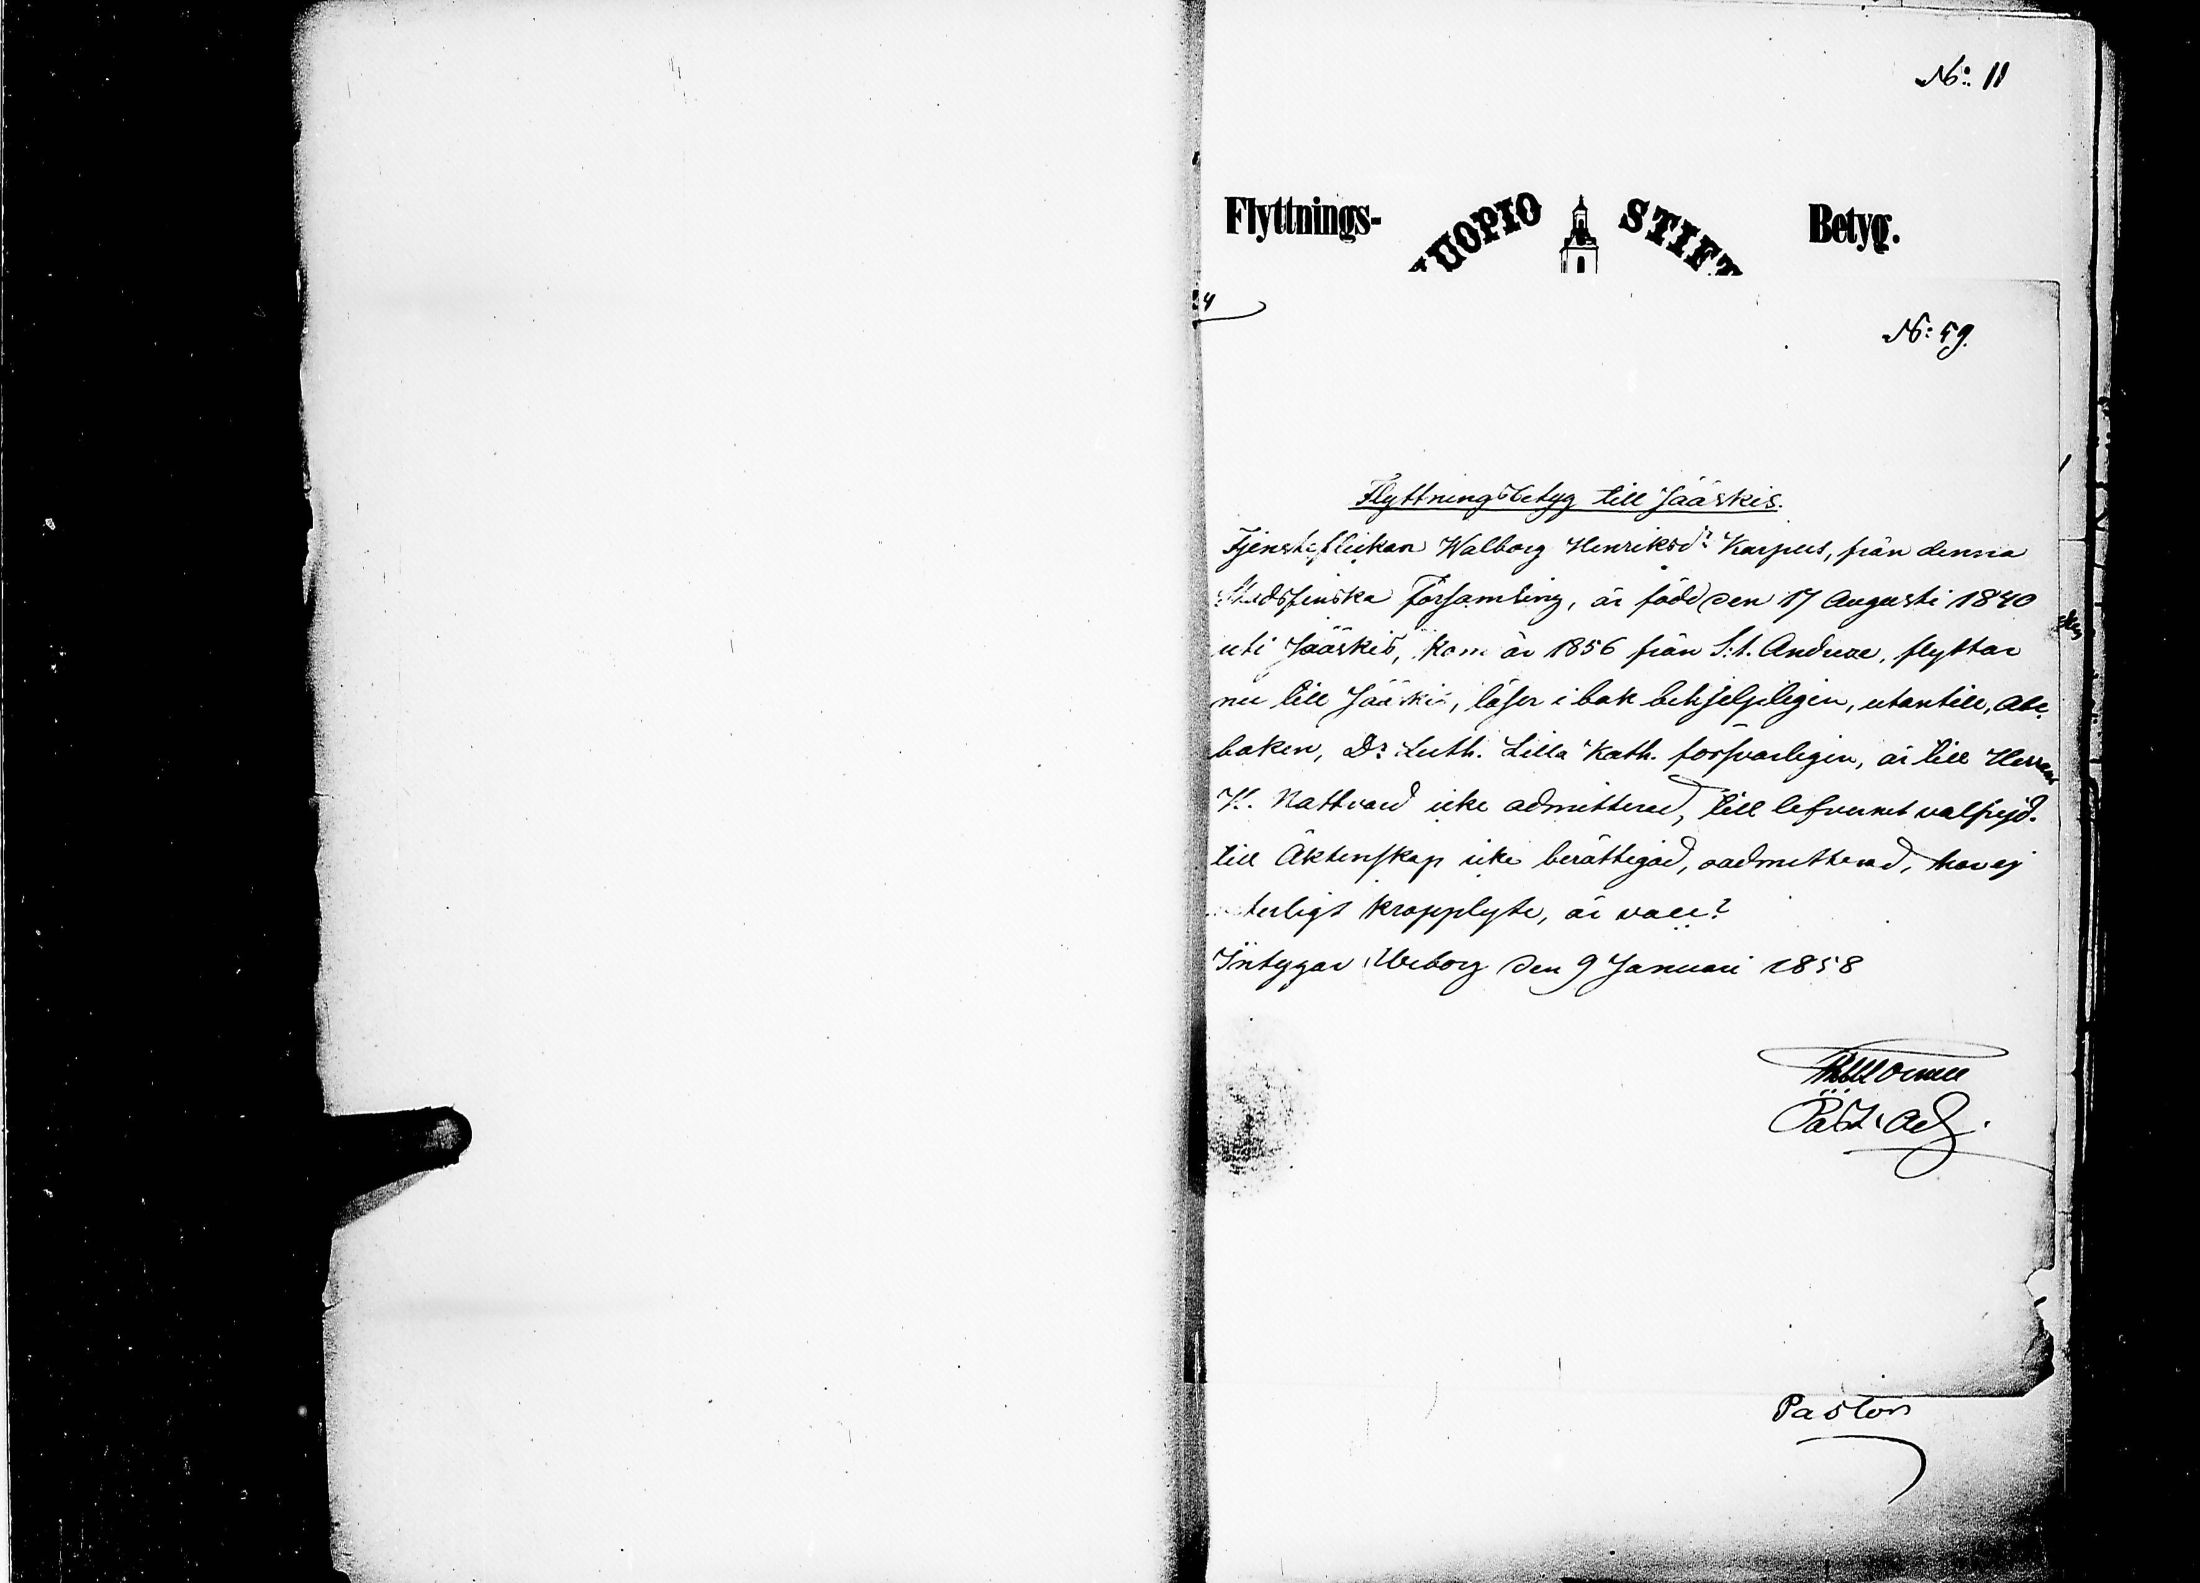 No: 11
Flyttnings- KUOPIO STIFT Betyg.
24
No: 59.
Flyttningsbetyg till Jääskis.
Tjensteflickan Walborg Henriksdr Karpus, från denna
Stadsfinska Församling, är född den 17 Augusti 1840
uti Jääskis, kom år 1856 från S:t. Andreae, flyttar
nu till Jääskis, läser i bok behjelpligen, utantill, Abc
boken, Drs Luth. Lilla Kath. försvarligen, är till Herrans
H. Nattvard icke admitterad, till lefvernet välfrejd.
till Äktenskap icke berättigad, oadmitterad, har ej
veterligt kropplyte, är vacc?
Intygar Wiborg den 9 Januari 1858
Past. Adj.
Pastor